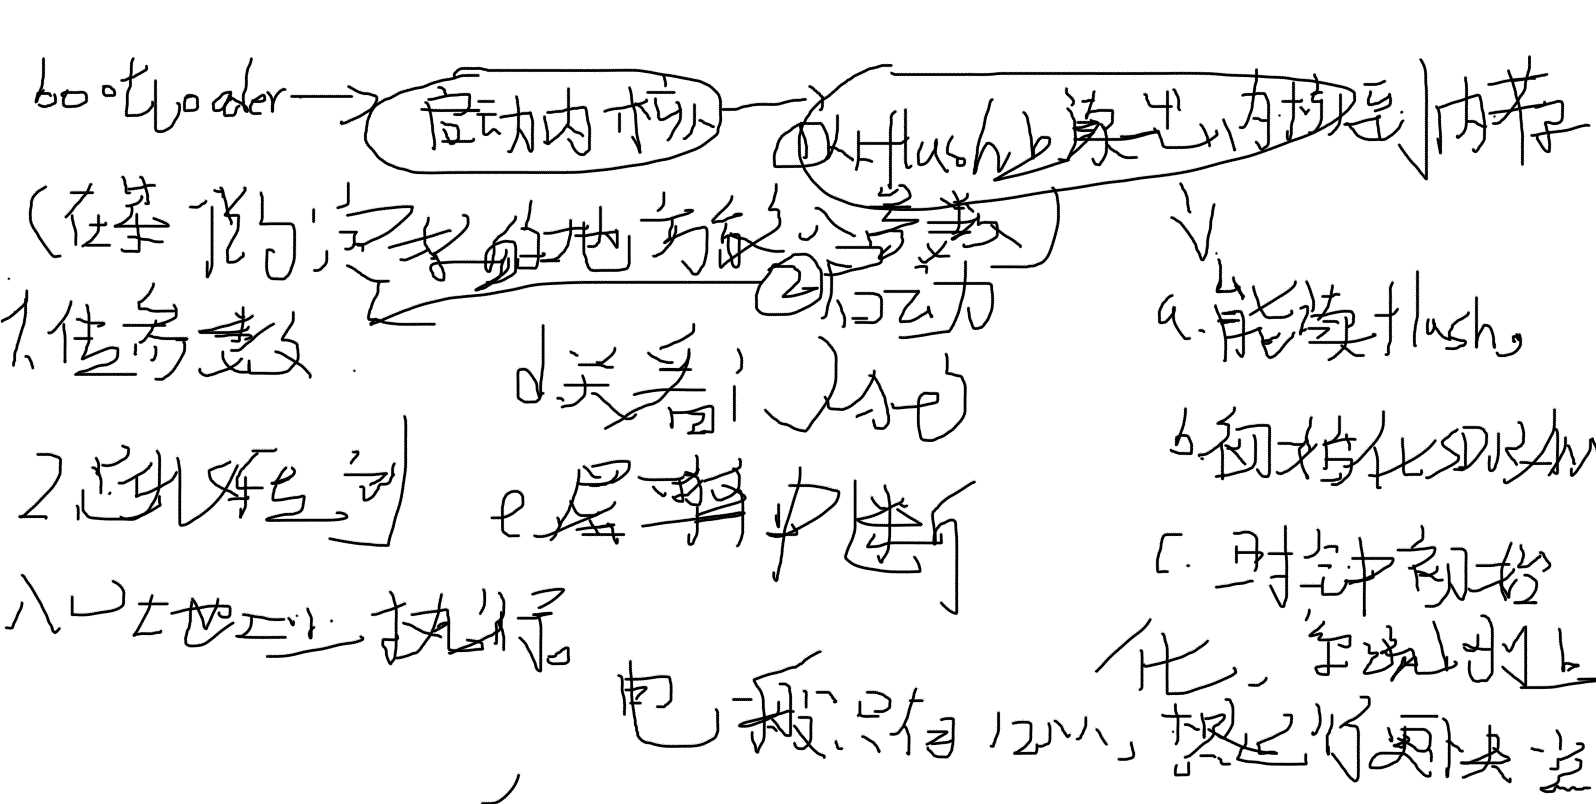 bootloader → 启动内核 → ①从flash上读出内核到内存
(在某个约定好的地方放入参数)
②启动
1、传参数
a. 能读flash,
d 关看门狗
b. 初始化SDRAM
2 跳转到
e 屏蔽中断
c. 时钟初始
入口地址执行。
化, 上
电一般只有12M, 想运行更快些